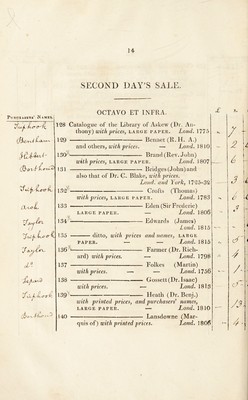 14
SECOND DAY'S SALE.
OCTAVO ET INFRA.
PURCHASERS' NAMES.
£
Triphook 128 Catalogue of the Library of Askew (Dr. An-
thony) with prices, LARGE PAPER. Lond. 1775
Bentham 129 —— Benner (R. H. A.)
and others, with prices. — Lond. 1810
Hibbert 130 —— Brand (Rev. John)
with prices, LARGE PAPER. Lond. 1807
131 —— Bridges (John) and
also that of Dr. C. Blake, with prices.
Lond. and York, 1725-32
Triphook 132 —— Crofts (Thomas)
with prices, LARGE PAPER. Lond. 1783
Arch 133 —— Eden (Sir Frederic)
LARGE PAPER. — Lond. 1806
Taylor 134 —— Edwards (James)
Lond. 1815
Triphook 135 —— ditto, with prices and names, LARGE
PAPER. — Lond. 1815
Taylor 136 —— Farmer (Dr. Rich-
ard) with prices. — Lond. 1798
do 137 —— Folkes (Martin)
with prices. — Lond. 1756
138 —— Gossett (Dr. Isaac)
with prices. — Lond. 1813
Triphook 139 —— Heath (Dr. Benj.)
with printed prices, and purchasers' names,
LARGE PAPER. — Lond. 1810
140 —— Lansdowne (Mar-
quis of) with printed prices. Lond. 1806